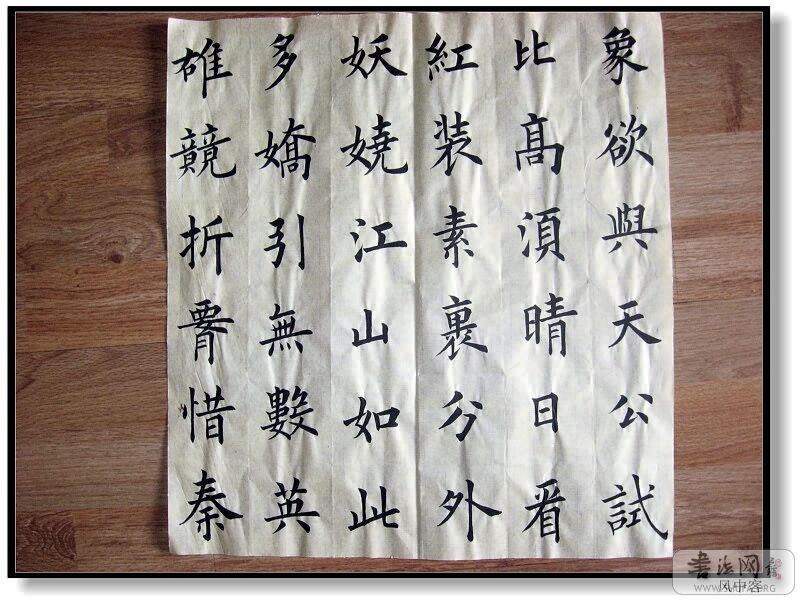 象欲與天公試
比髙須晴日看
紅装素裹分外
妖嬈江山如此
多嬌引無數英
雄競折腰惜秦
书法网
WWW.SHUFA.ORG
风中客